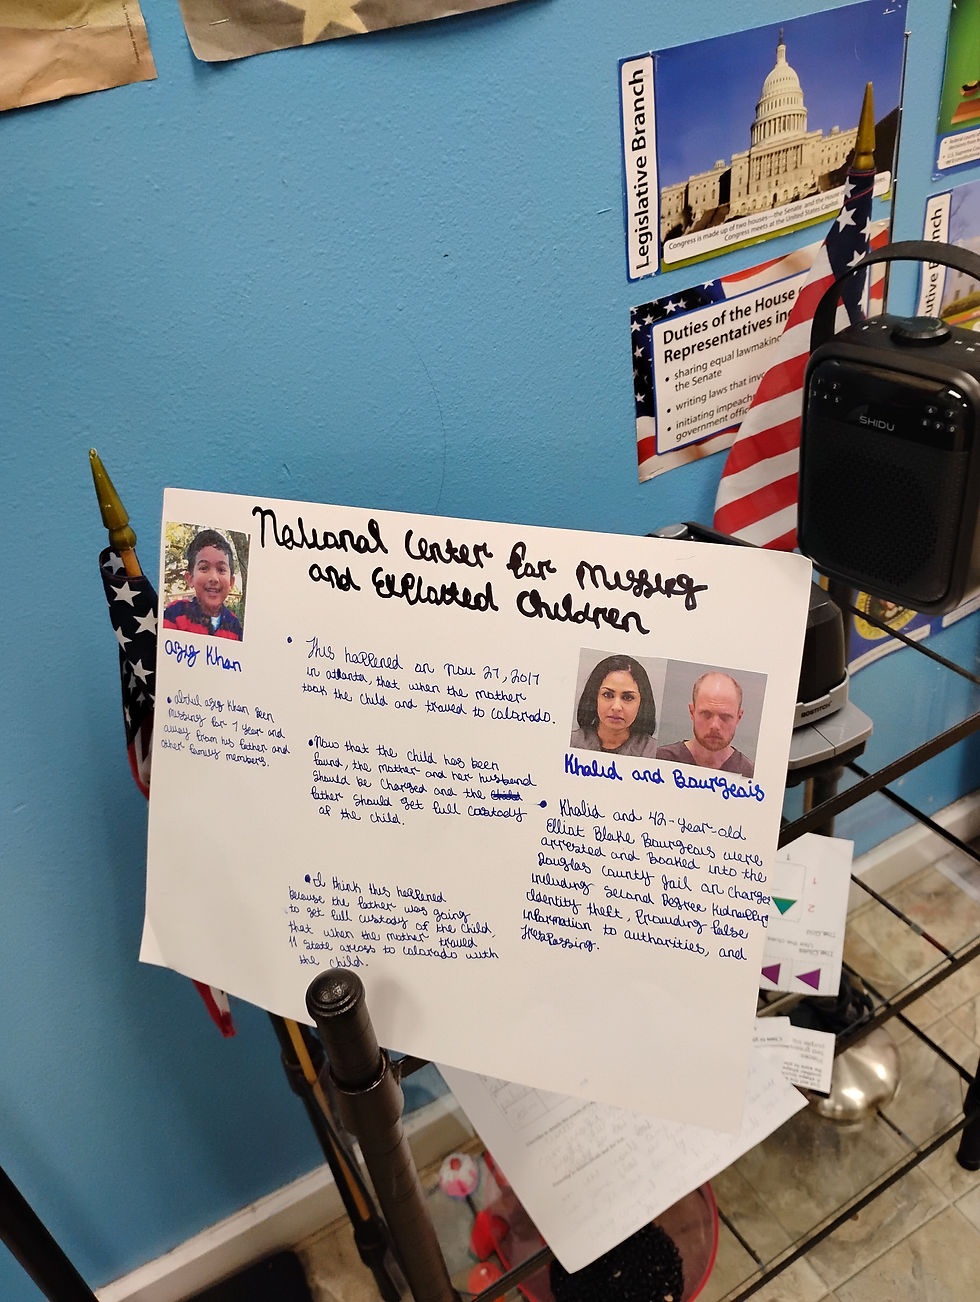 Legislative Branch
Congress is made up of two houses—the Senate and the House
Congress meets at the United States Capitol.
Duties of the House
Representatives inc
• sharing equal lawmaking
the Senate
• writing laws that invo
• initiating impeach
government offic
utive Branch
SHIDU
BOSTITCH
National Center for Missing
and Exploited Children
Aziz Khan
• abdul aziz Khan been
missing for 7 year and
away from his father and
other family members.
• This happened on Nov 27, 2017
in atlanta, that when the mother
took the child and traved to Colorado.
• Now that the child has been
found, the mother and her husband
should be charged and the child
father should get full custody
of the child.
• I think this happened
because the father was going
to get full custody of the child,
that when the mother traved
11 state across to Colorado with
the child.
Khalid and Bourgeois
• Khalid and 42-year-old
Elliot Blake Bourgeois were
arrested and booked into the
Douglas County Jail on charges
including second degree kidnapping
identity theft, providing false
information to authorities, and
trespassing.